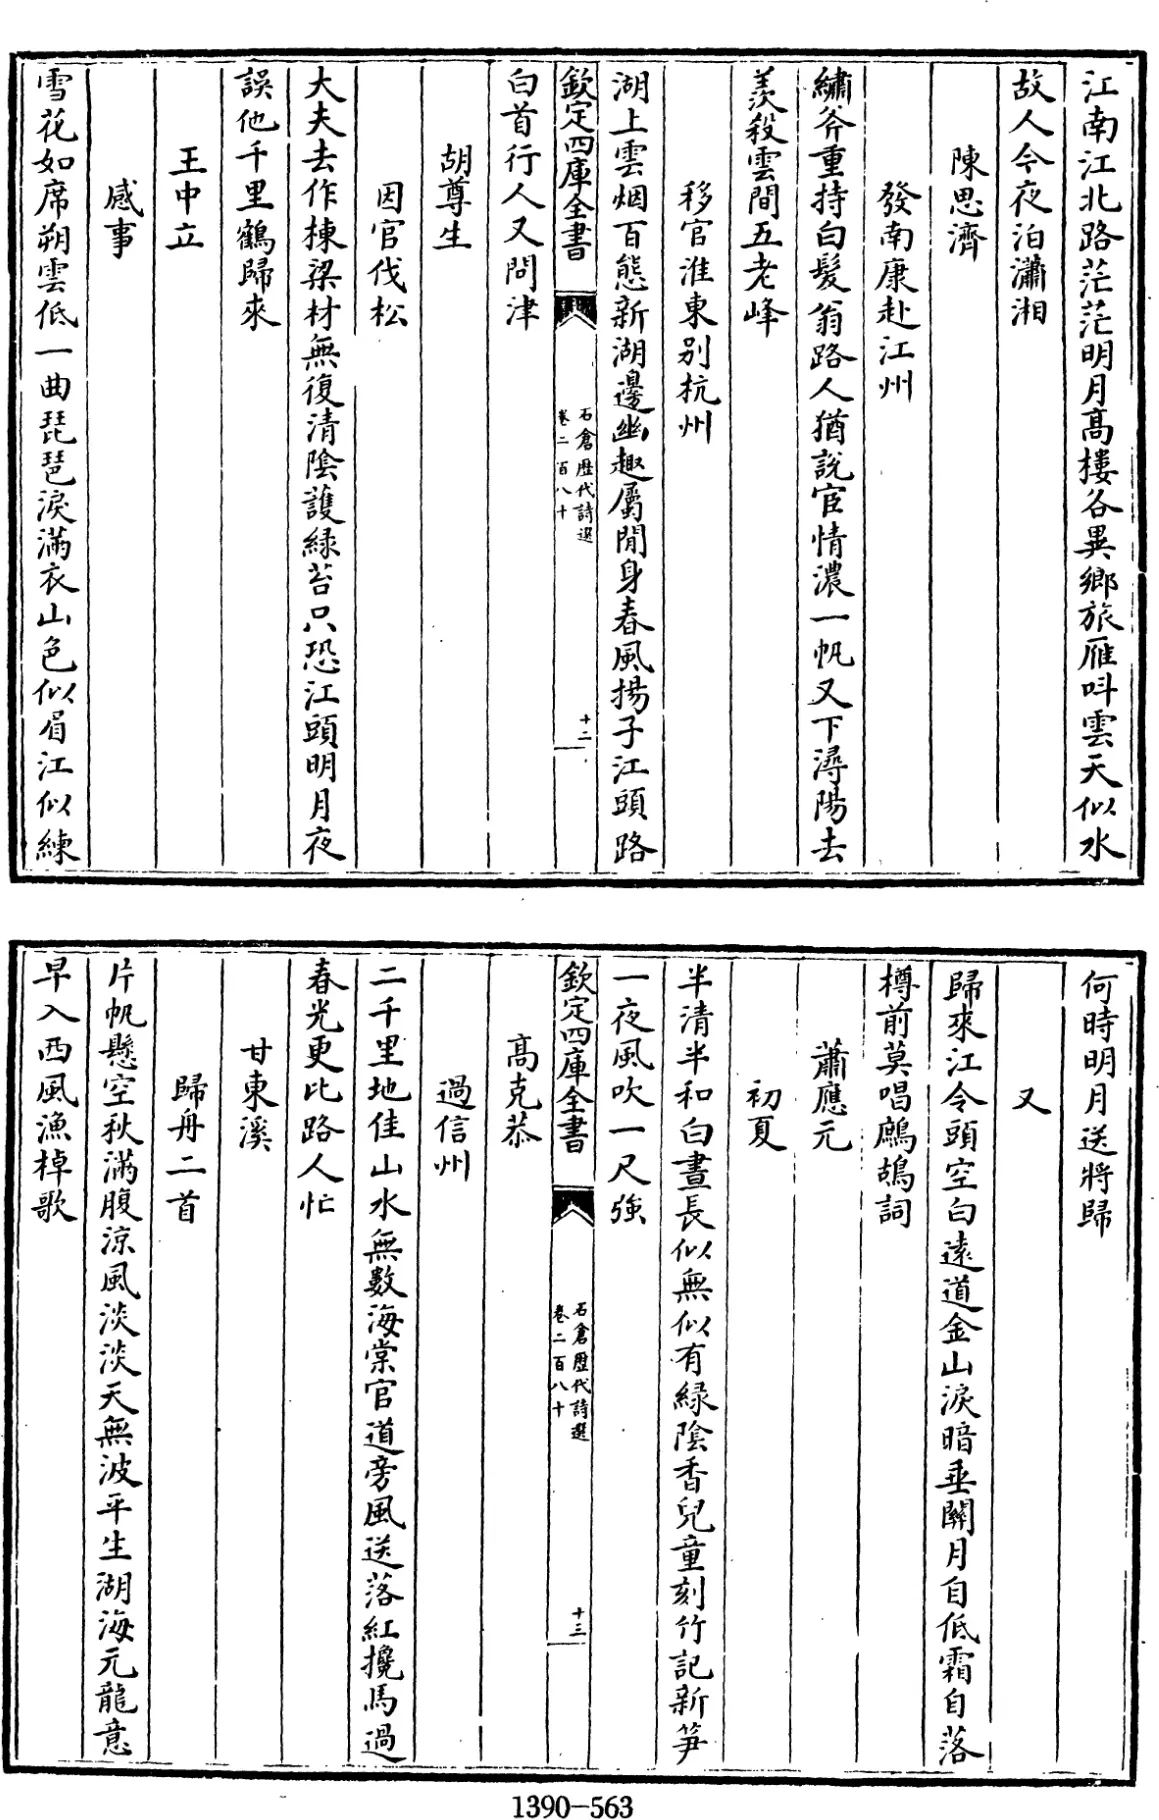 江南江北路茫茫明月髙樓各異鄉旅雁呌雲天似水
故人今夜泊瀟湘
陳思濟
發南康赴江州
繡斧重持白髪翁路人猶說宦情濃一帆又下潯陽去
羨殺雲間五老峰
移官淮東别杭州
湖上雲烟百態新湖邊幽趣屬閒身春風揚子江頭路
欽定四庫全書
石倉歴代詩選
卷二百八十
十二
白首行人又問津
胡尊生
因官伐松
大夫去作棟梁材無復清陰護緑苔只恐江頭明月夜
誤他千里鶴歸來
王中立
感事
雪花如席朔雲低一曲琵琶淚滿衣山色似眉江似練
何時明月送將歸
又
歸來江令頭空白遠道金山淚暗垂關月自低霜自落
樽前莫唱鷓鴣詞
蕭應元
初夏
半清半和白晝長似無似有緑陰香兒童刻竹記新笋
一夜風吹一尺強
欽定四庫全書
石倉歴代詩選
卷二百八十
十三
髙克恭
過信州
二千里地佳山水無數海棠官道旁風送落紅攙馬過
春光更比路人忙
甘東溪
歸舟二首
片帆懸空秋滿腹涼風淡淡天無波平生湖海元龍意
早入西風漁棹歌
1390-563